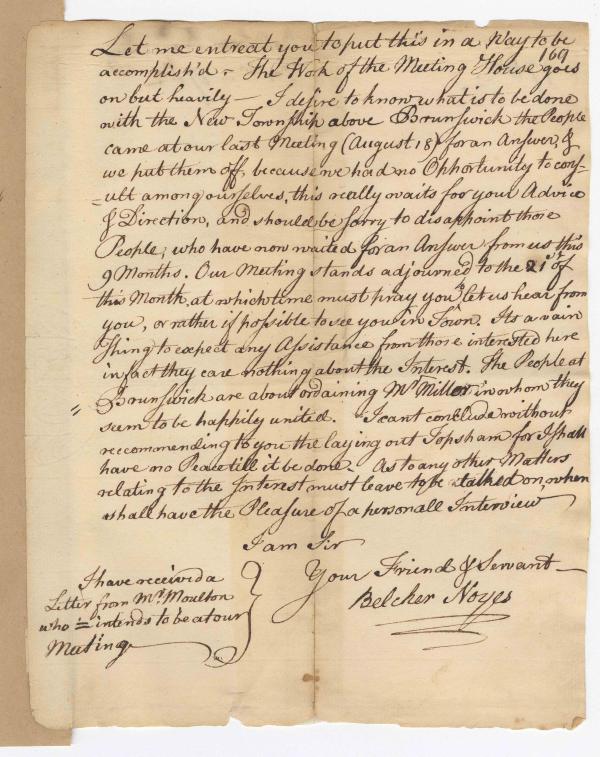 Let me entreat you to put this in a Way to be
169
accomplish'd - The Work of the Meeting House goes
on but heavily - I desire to know what is to be done
with the New Township above Brunswick the People
came at our last Meeting (August 18) for an Answer, &
we put them off, because we had no Opportunity to cons-
-ult among ourselves, this really waits for your Advice
& Direction, and should be sorry to disappoint those
People, who have now waited for an Answer from us this
9 Months. Our Meeting stands adjourned to the 21st of
this Month, at which time must pray you'd let us hear from
you, or rather if possible to see you in Town. Its a vain
Thing to expect any Assistance from those interested here
in fact they care nothing about the Interest. The People at
Brunswick are about ordaining Mr Miller, in whom they
seem to be happily united. I cant conclude without
recommending to you the laying out Topsham for I shall
have no Peace till it be done. As to any other Matters
relating to the Interest must leave to be talked on, when
shall have the Pleasure of a personall Interview
I am Sir
Your Friend & Servant
Belcher Noyes
I have received a
Letter from Mr Moulton
who = intends to be at our
Meeting